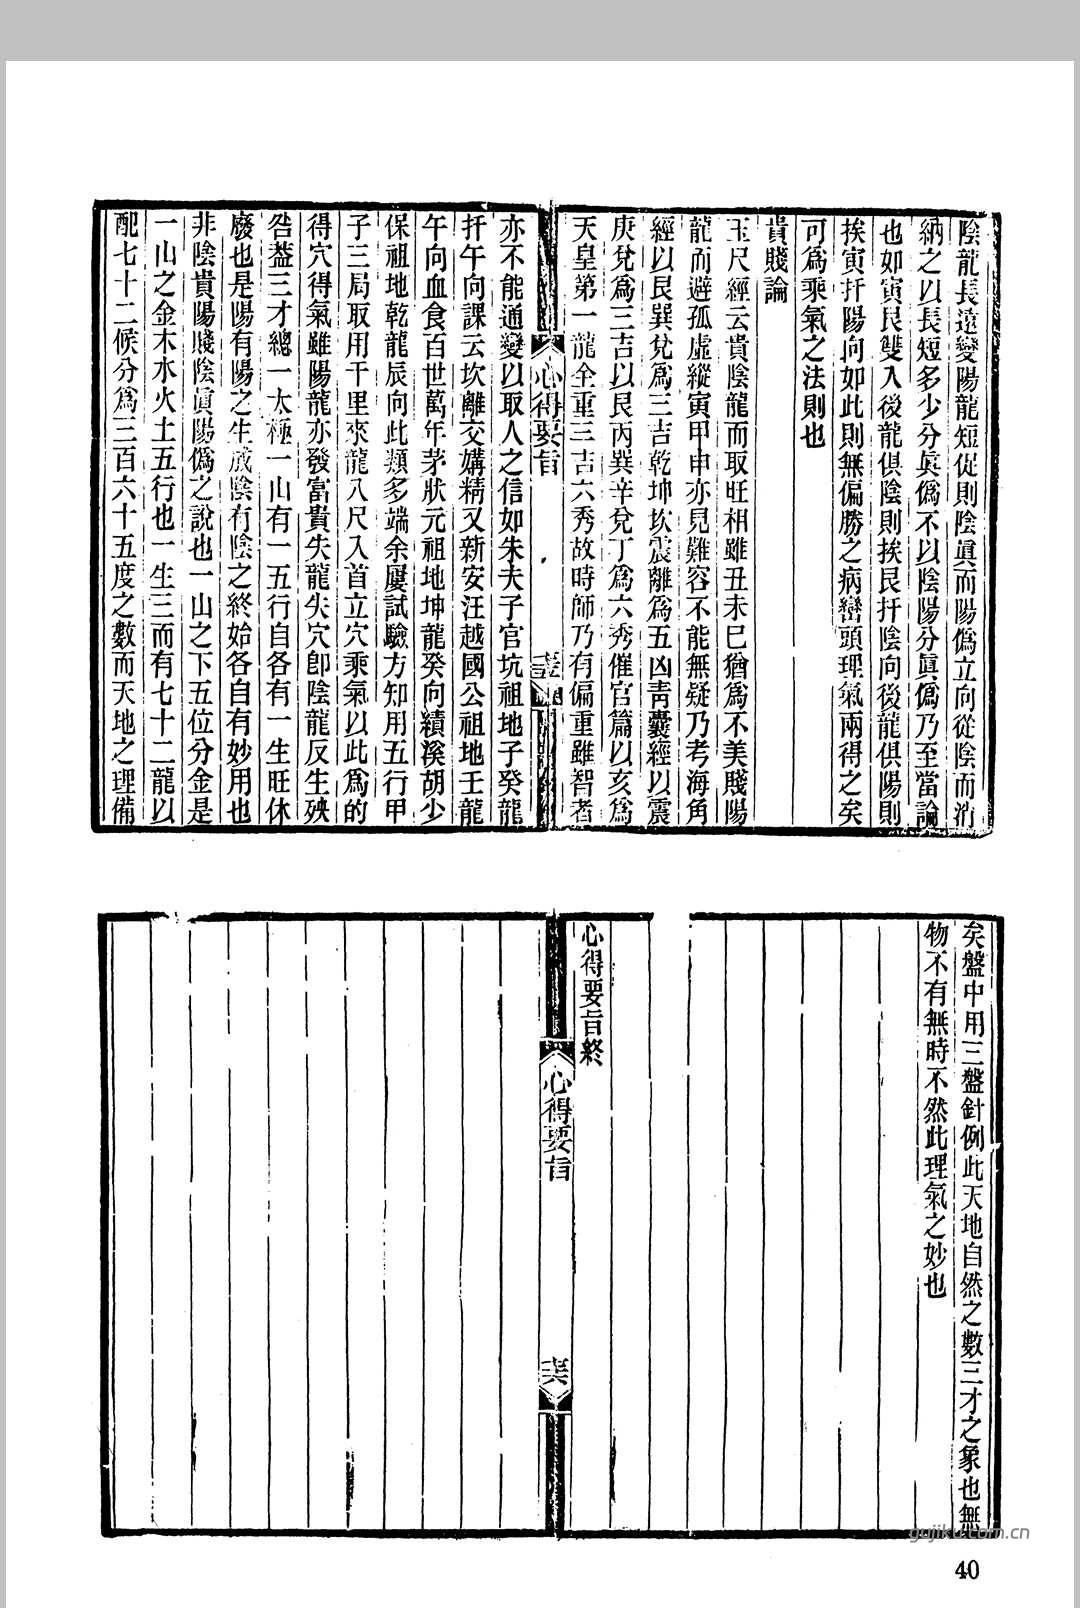 陰龍長遠變陽龍短促則陰眞而陽僞立向從陰而消
納之以長短多少分眞僞不以陰陽分眞僞乃至當論
也如寅艮雙入後龍俱陰則挨艮扦陰向後龍俱陽則
挨寅扦陽向如此則無偏勝之病巒頭理氣兩得之矣
可爲乘氣之法則也
貴賤論
玉尺經云貴陰龍而取旺相雖丑未巳猶爲不美賤陽
龍而避孤虛縱寅甲申亦見難容不能無疑乃考海角
經以艮巽兌爲三吉乾坤坎震離爲五凶靑囊經以震
庚兌爲三吉以艮丙巽辛兌丁爲六秀催官篇以亥爲
天皇第一龍全重三吉六秀故時師乃有偏重雖智者
心得要旨
亦不能通變以取人之信如朱夫子官坑祖地子癸龍
扦午向課云坎離交媾精又新安汪越國公祖地壬龍
午向血食百世萬年茅狀元祖地坤龍癸向績溪胡少
保祖地乾龍辰向此類多端余屢試驗方知用五行甲
子三局取用千里來龍八尺入首立穴乘氣以此爲的
得穴得氣雖陽龍亦發富貴失龍失穴卽陰龍反生殃
咎葢三才總一太極一山有一五行自各有一生旺休
廢也是陽有陽之生成陰有陰之終始各自有妙用也
非陰貴陽賤陰眞陽僞之說也一山之下五位分金是
一山之金木水火土五行也一生三而有七十二龍以
配七十二候分爲三百六十五度之數而天地之理備
矣盤中用三盤針例此天地自然之數三才之象也無
物不有無時不然此理氣之妙也
心得要旨終
心得要旨
十六
gujiku.com.cn
40